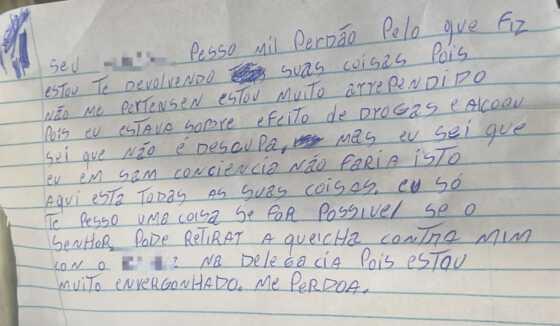 Seu Pesso mil Perdão Pelo que Fiz
estou Te Devolvendo suas coisas Pois
não me Pertensen estou muito arrependido
Pois eu estava sopre efeito de Drogas e Alcoou
sei que não é Descupa, mas eu sei que
eu em sam conciencia não Faria isto
Aqui esta Todas as suas coisas. eu só
Te Pesso uma coisa se for Possivel se o
senhor, Pode Retirat a queicha contra mim
con o na Delegacia Pois estou
muito envergonhado. me Perdoa.